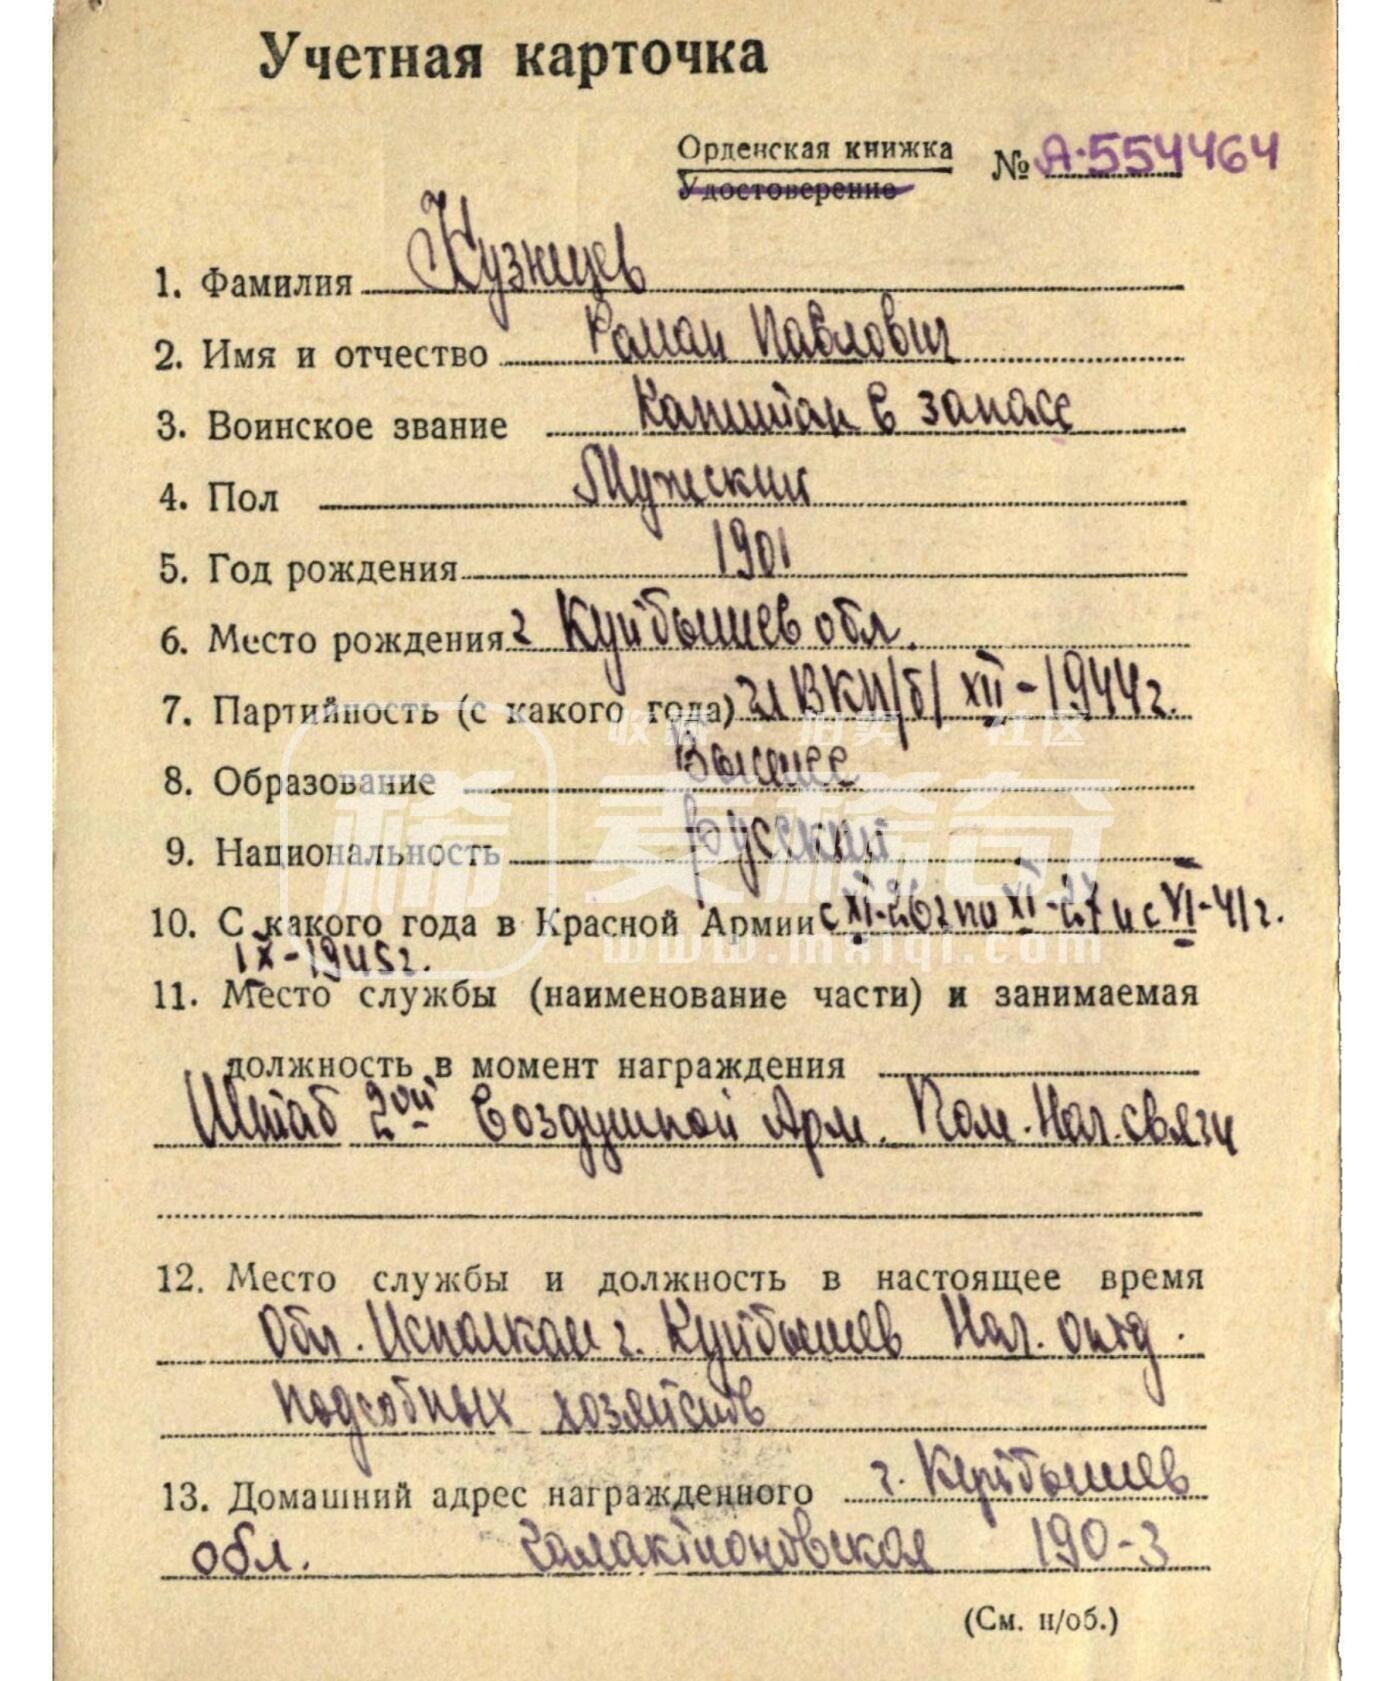 Учетная карточка
Орденская книжка № А-554464
Удостоверение
1. Фамилия Кузнецов
2. Имя и отчество Роман Павлович
3. Воинское звание Капитан в запасе
4. Пол Мужской
5. Год рождения 1901
6. Место рождения г Куйбышев обл.
7. Партийность (с какого года) чл ВКП/б/ XII-1944г.
8. Образование Высшее
9. Национальность Русский
10. С какого года в Красной Армии с XI-26г по XI-27 и с VI-41г.
IX-1945г.
11. Место службы (наименование части) и занимаемая
должность в момент награждения
Штаб 2ой Воздушной Арм. Пом. Нач. связи
12. Место службы и должность в настоящее время
Обл. Исполком г. Куйбышев Нач. отд.
подсобных хозяйств
13. Домашний адрес награжденного г. Куйбышев
обл. Галактионовская 190-3
(См. н/об.)
收藏 拍卖 社区
麦稀奇
www.mxiqi.com